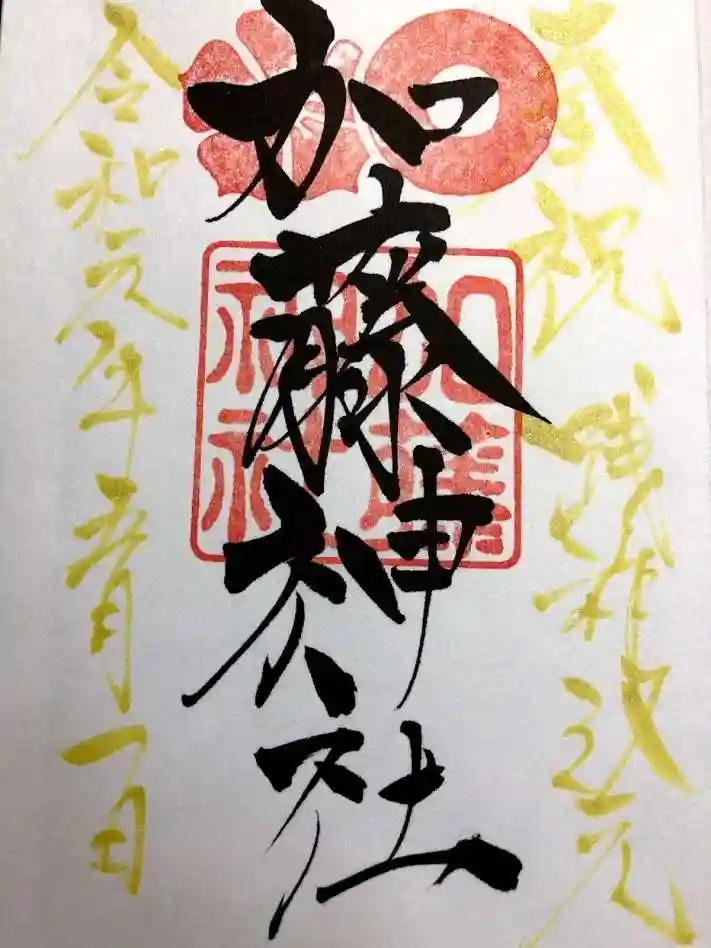 奉祝 践祚改元
加藤神社
令和元年五月一日
加藤
神社